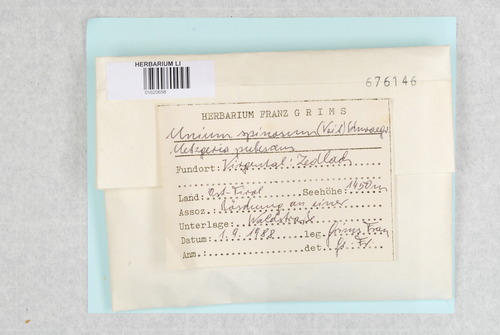 HERBARIUM LI
01620658
676146
HERBARIUM FRANZ GRIMS
Mnium spinosum (Voit) Schwaegr.
Metzgeria pubescens
Fundort: Virgental: Zedlach
Land: Ost-Tirol Seehöhe: 1450m
Assoz.: Böschung an einer
Unterlage: Waldstraße
Datum: 1.9.1988 leg. Grims Franz
Anm.: det. Gr. Fr.